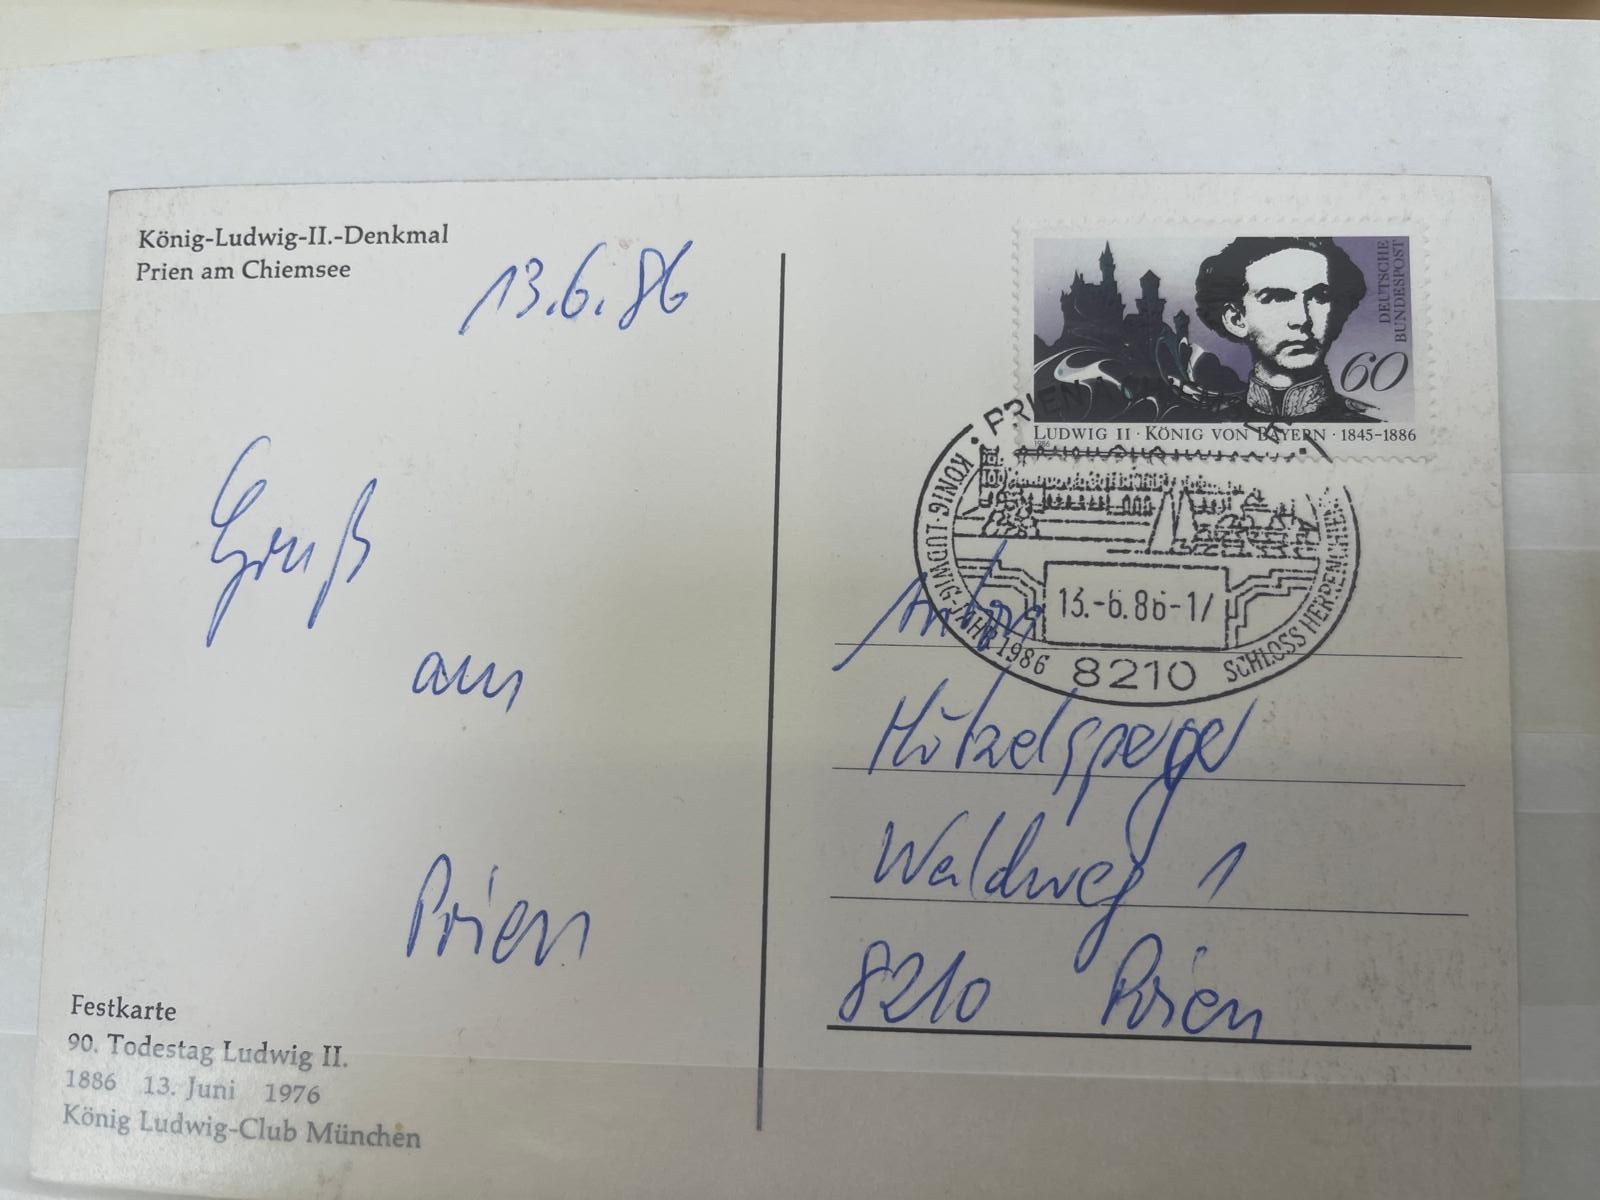 König-Ludwig-II.-Denkmal
Prien am Chiemsee
13.6.86
Gruß
aus
Prien
Festkarte
90. Todestag Ludwig II.
1886 13. Juni 1976
König Ludwig-Club München
DEUTSCHE
BUNDESPOST
60
LUDWIG II · KÖNIG VON BAYERN · 1845-1886
1986
PRIEN A. CHIEMSEE
KÖNIG-LUDWIG-JAHR 1986
SCHLOSS HERRENCHIEMSEE
13.-6.86-17
8210
Anton
Hötzelsperger
Waldweg 1
8210 Prien